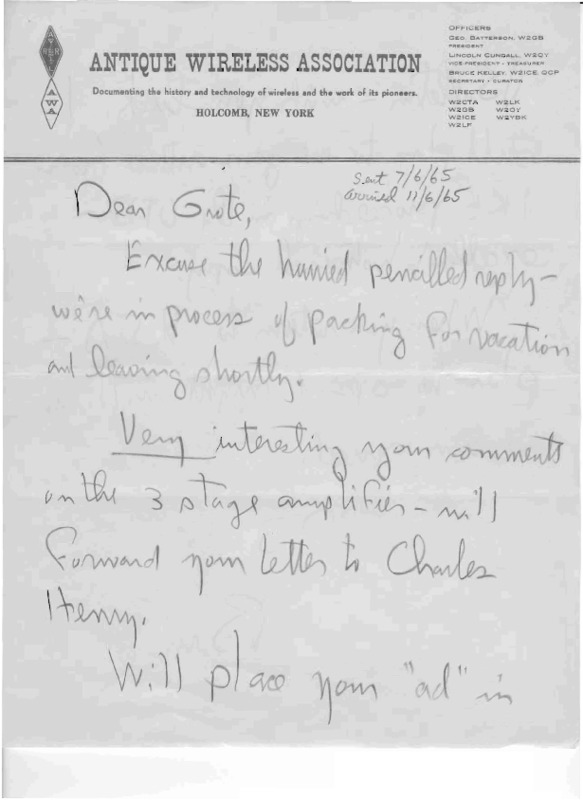 ANTIQUE WIRELESS ASSOCIATION
Documenting the history and technology of wireless and the work of its pioneers.
HOLCOMB, NEW YORK
AWA
OFFICERS
GEO. BATTERSON, W2GB
PRESIDENT
LINCOLN CUNDALL, W2QY
VICE-PRESIDENT - TREASURER
BRUCE KELLEY, W2ICE, QCP
SECRETARY - CURATOR
DIRECTORS
W2CTA W2LK
W2GB W2QY
W2ICE W2YBK
W2LF
Sent 7/6/65
arrived 11/6/65
Dear Grote,
Excuse the hurried pencilled reply -
we're in process of packing for vacation
and leaving shortly.
Very interesting your comments
on the 3 stage amplifier - will
forward your letter to Charles
Henry.
Will place your "ad" in